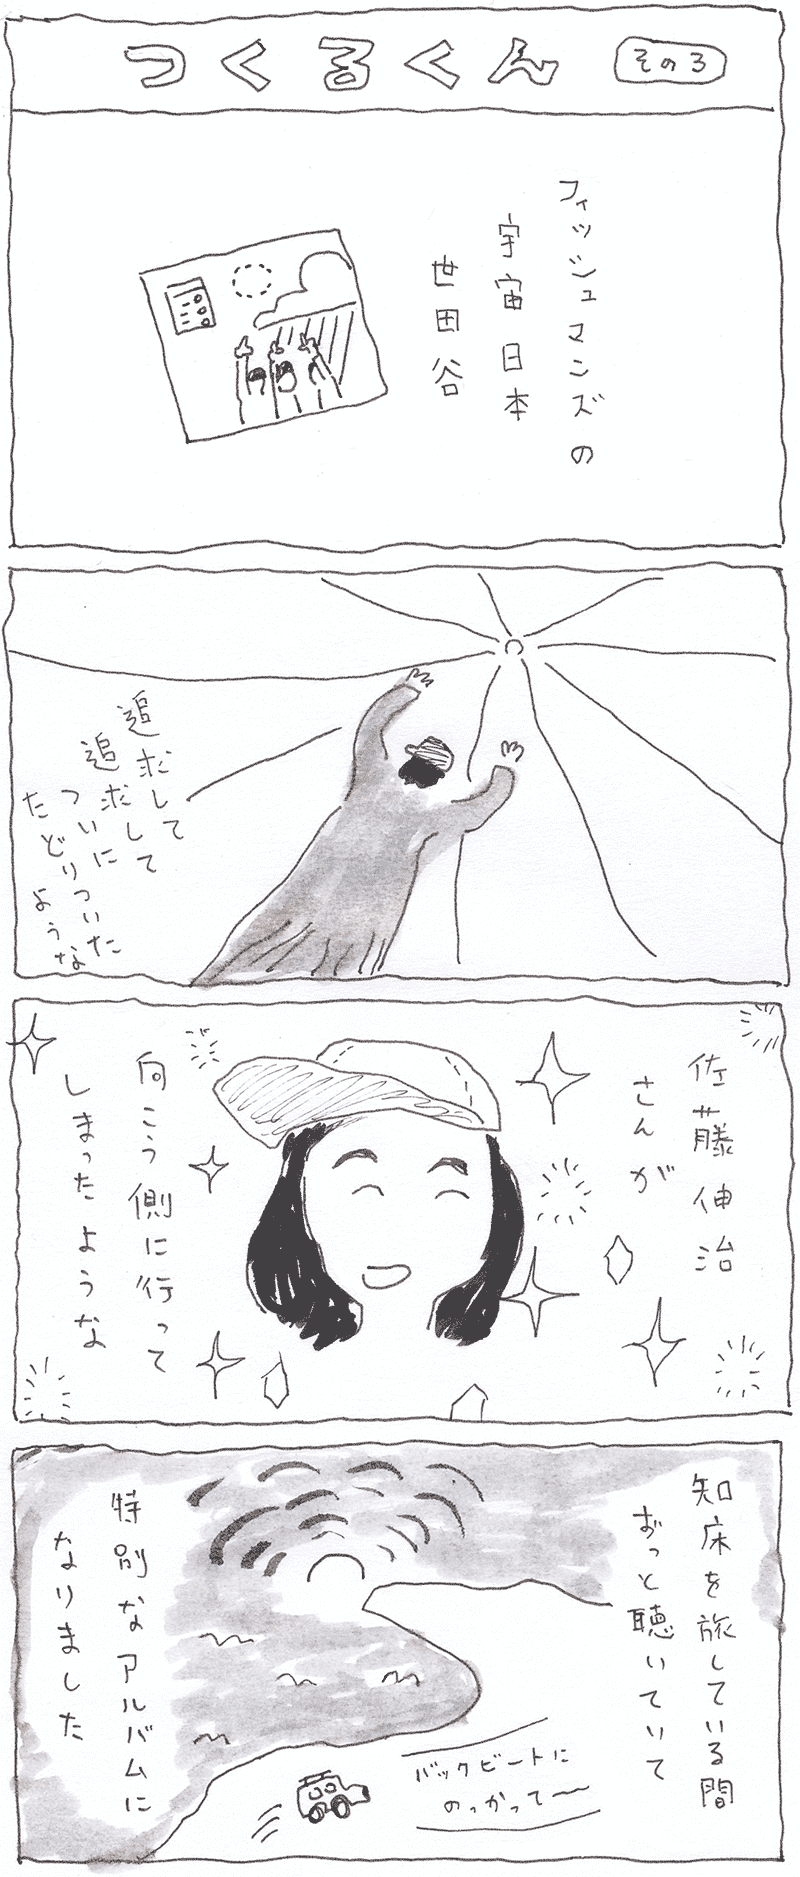 つくるくん
その3
フィッシュマンズの
宇宙 日本
世田谷
追求して
追求して
ついに
たどりついた
ような
佐藤伸治
さんが
向こう側に行って
しまったような
知床を旅している間
ずっと聴いていて
バックビートに
のっかって〜
特別なアルバムに
なりました